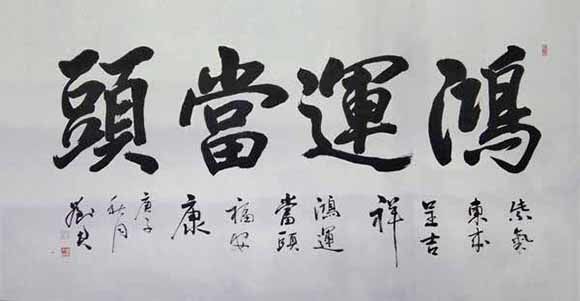 鴻運當頭
紫氣
東來
呈吉
祥
鴻運
當頭
福安
康
庚子
秋月